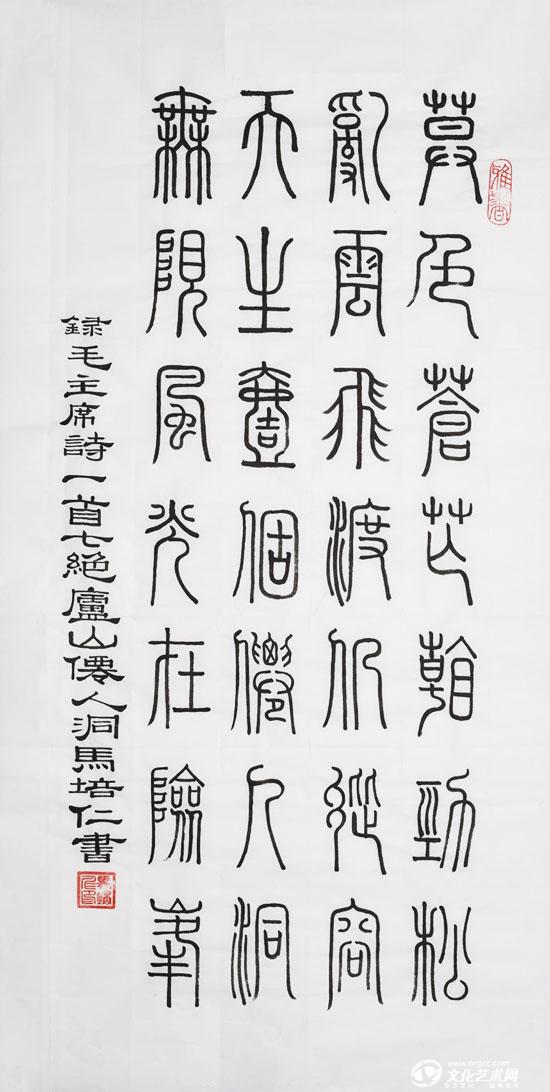 暮色蒼茫看勁松
亂雲飛渡仍從容
天生壹個僊人洞
無限風光在險峯
録毛主席詩一首七絶廬山僊人洞馬培仁書
www.orgcc.com
文化艺术网